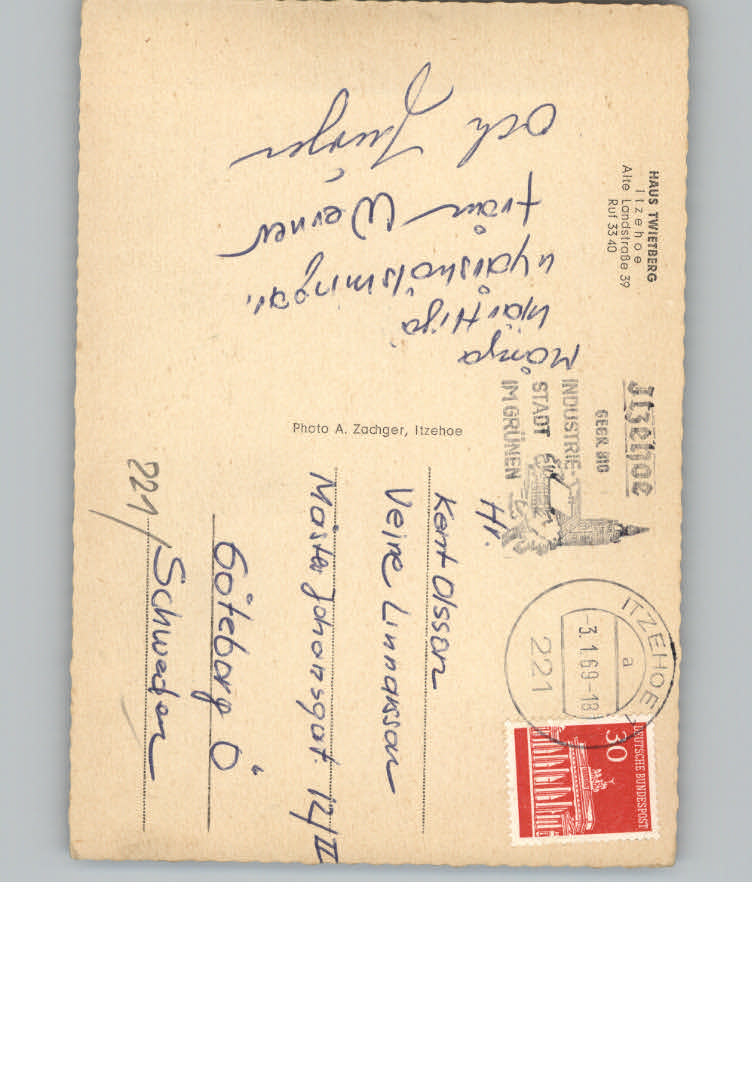 HAUS TWIETBERG
Itzehoe
Alte Landstraße 39
Ruf 33 40
Många
hjärtliga
nyårshälsningar
från Werner
och Jürgen
Photo A. Zachger, Itzehoe
Itzehoe
GEGR. 810
INDUSTRIE-
STADT
IM GRÜNEN
ITZEHOE
a
-3.1.69-18
221
DEUTSCHE BUNDESPOST
30
Hr.
Kent Olsson
Veine Linnarsson
Mäster Johansgat. 12/II
Göteborg Ö
221/ Schweden